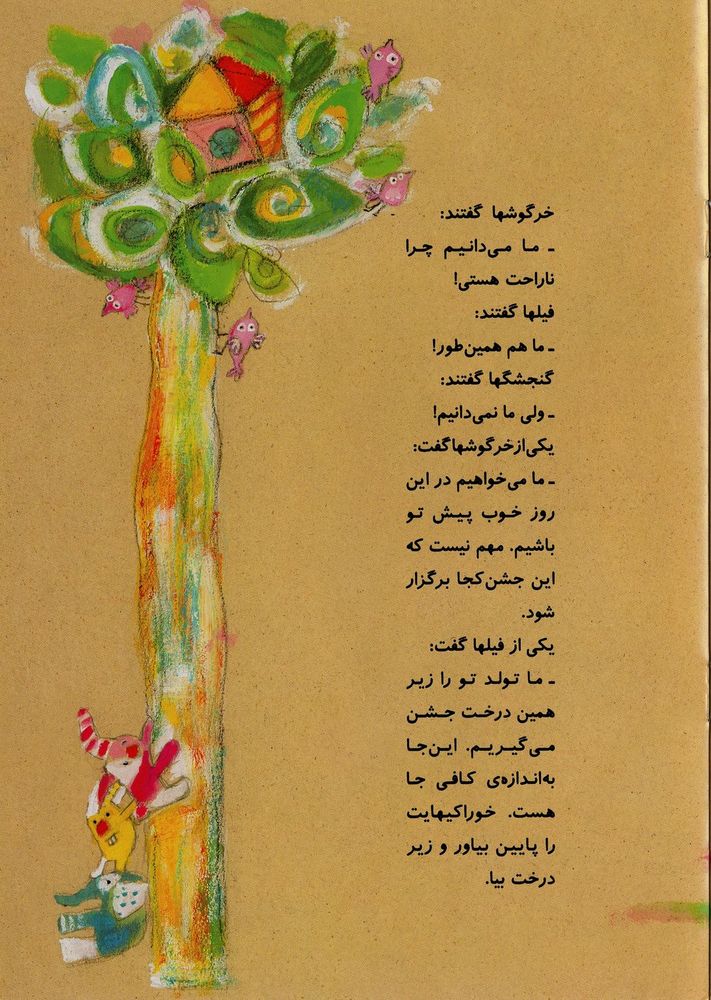 خرگوشها گفتند:
ـ ما می‌دانیم چرا
ناراحت هستی!
فیلها گفتند:
ـ ما هم همین‌طور!
گنجشگها گفتند:
ـ ولی ما نمی‌دانیم!
یکی‌ازخرگوشهاگفت:
ـ ما می‌خواهیم در این
روز خوب پیش تو
باشیم. مهم نیست که
این جشن‌کجا برگزار
شود.
یکی از فیلها گفت:
ـ ما تولد تو را زیر
همین درخت جشن
می‌گیریم. این‌جا
به‌اندازه‌ی کافی جا
هست. خوراکیهایت
را پایین بیاور و زیر
درخت بیا.